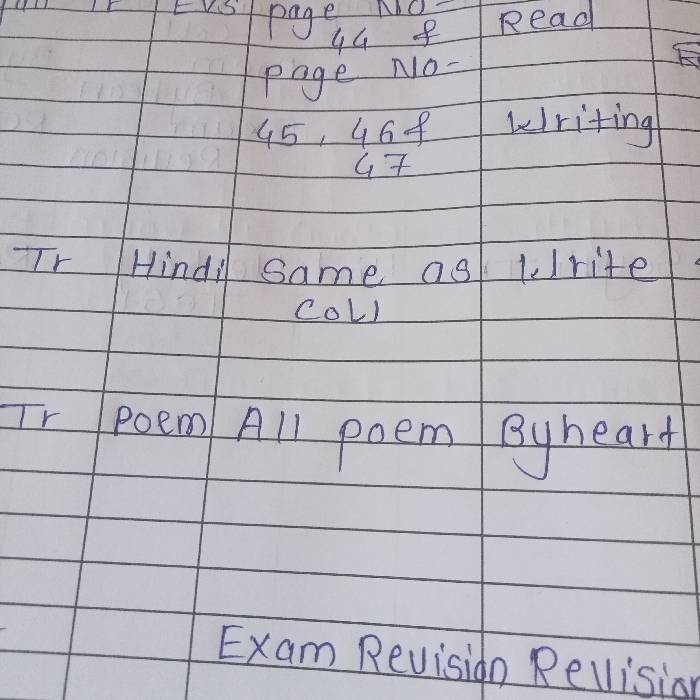 EVS page No- Read
44 &
page No-
45, 46 & Writing
47
Tr Hindi Same as Write
CoW
Tr Poem All poem Byheart
Exam Revision Revision